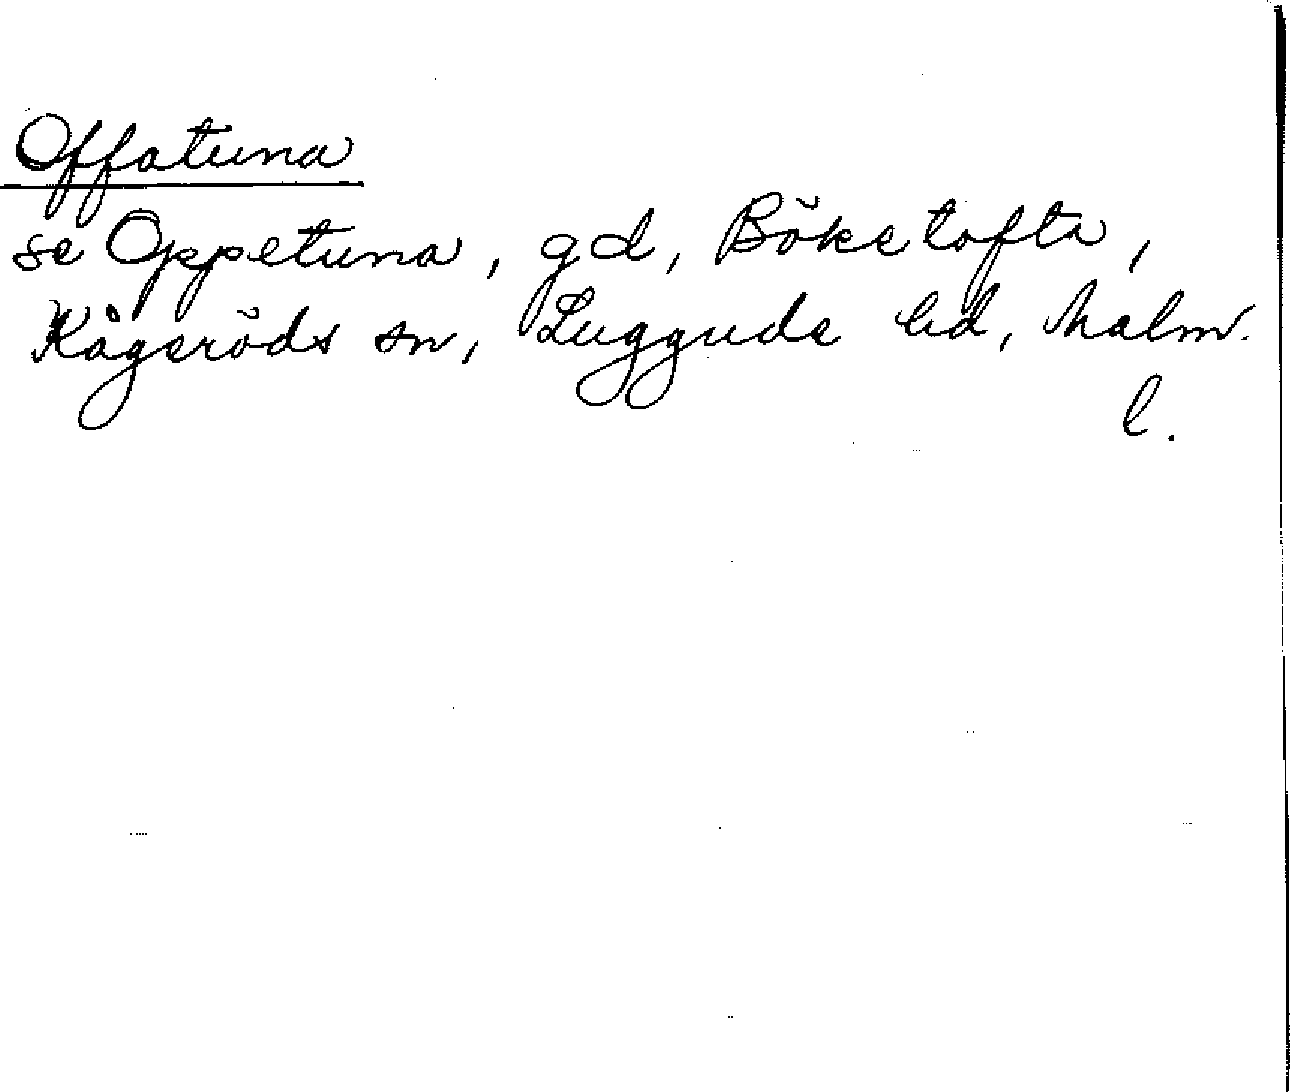 Offatuna
se Oppetuna, gd, Böketofta,
Kågeröds sn, Luggude hd, Malm.
l.